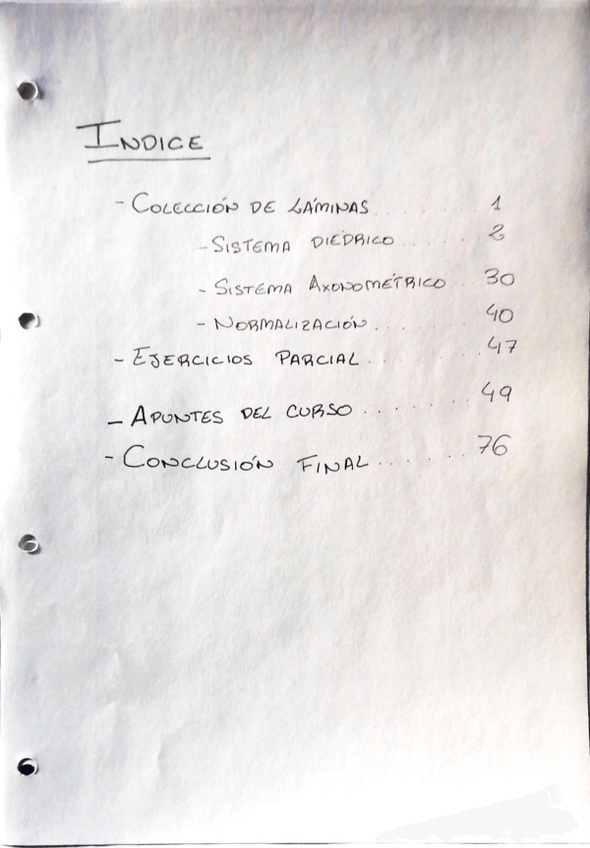 INDICE
- COLECCIÓN DE LÁMINAS ........ 1
- SISTEMA DIÉDRICO ...... 2
- SISTEMA AXONOMÉTRICO .. 30
- NORMALIZACIÓN ........ 40
- EJERCICIOS PARCIAL ........ 47
- APUNTES DEL CURSO ........ 49
- CONCLUSIÓN FINAL ....... 76